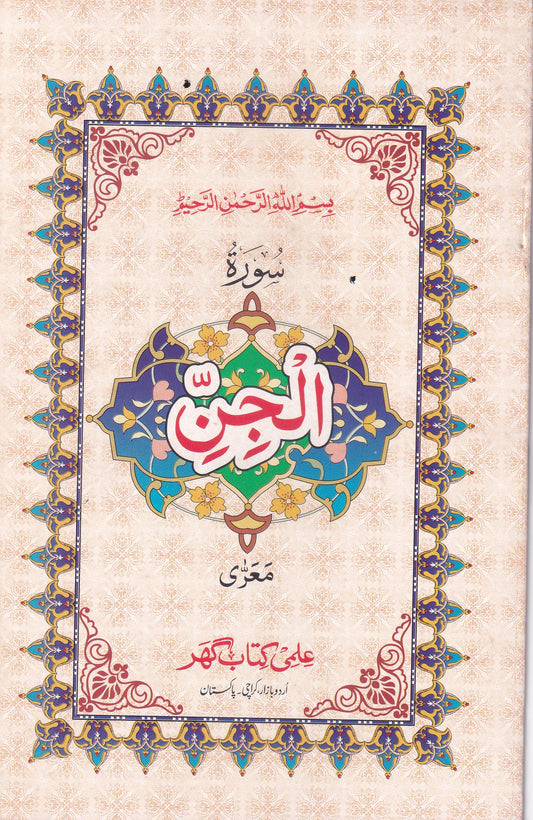 بِسْمِ اللهِ الرَّحْمٰنِ الرَّحِيْمِ
سُورَۃُ
الْجِنِّ
مَعَرّٰی
عِلمی کِتاب گھَر
اُردو بازار، کراچی۔ پاکستان